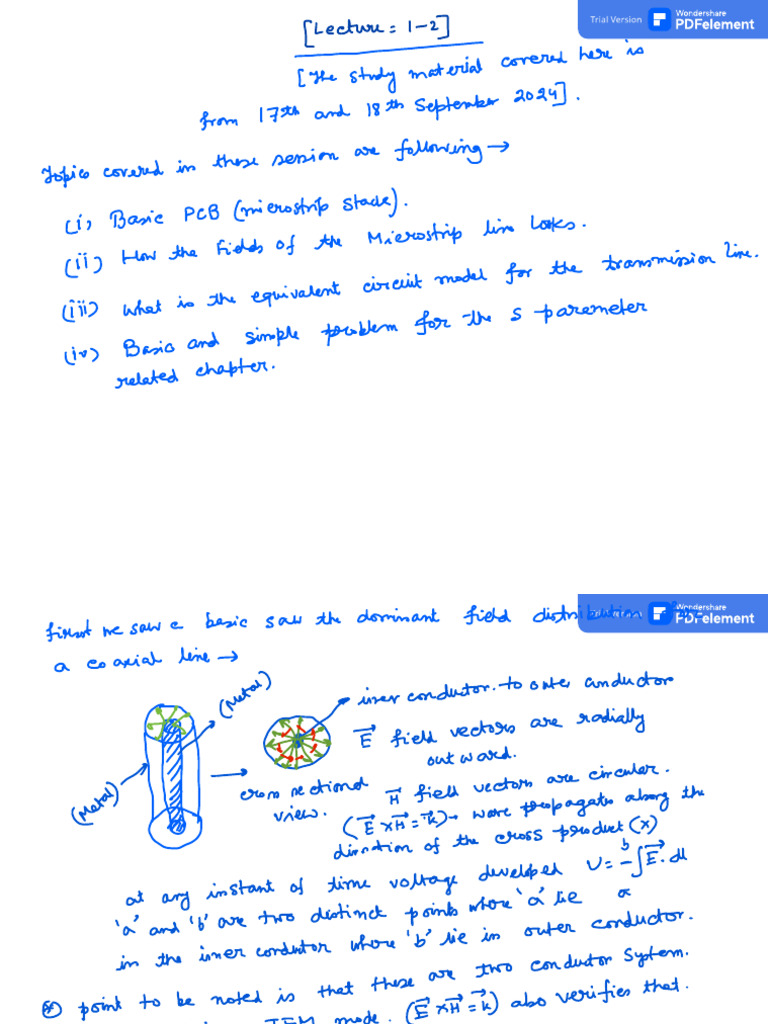 [Lecture = 1-2]
Trial Version Wondershare PDFelement
[The study material covered here is
from 17th and 18th September 2024].
Topics covered in these session are following →
(i) Basic PCB (microstrip stack).
(ii) How the Fields of the Microstrip line looks.
(iii) what is the equivalent circuit model for the transmission line.
(iv) Basic and simple problem for the S parameter
related chapter.
Wondershare PDFelement
first we saw a basic saw the dominant field distribution
a coaxial line →
(Metal)
inner conductor to outer conductor
E⃗ field vectors are radially
outward.
(Metal)
cross sectional
view.
H⃗ field vectors are circular.
(E⃗ × H⃗ = k⃗) wave propagates along the
direction of the cross product (x)
at any instant of time voltage developed V = -∫ₐᵇ E⃗. dl
'a' and 'b' are two distinct points where 'a' lie
in the inner conductor where 'b' lie in outer conductor.
⊛ point to be noted is that these are two conductor system.
TEM mode. (E⃗ × H⃗ = k⃗) also verifies that.